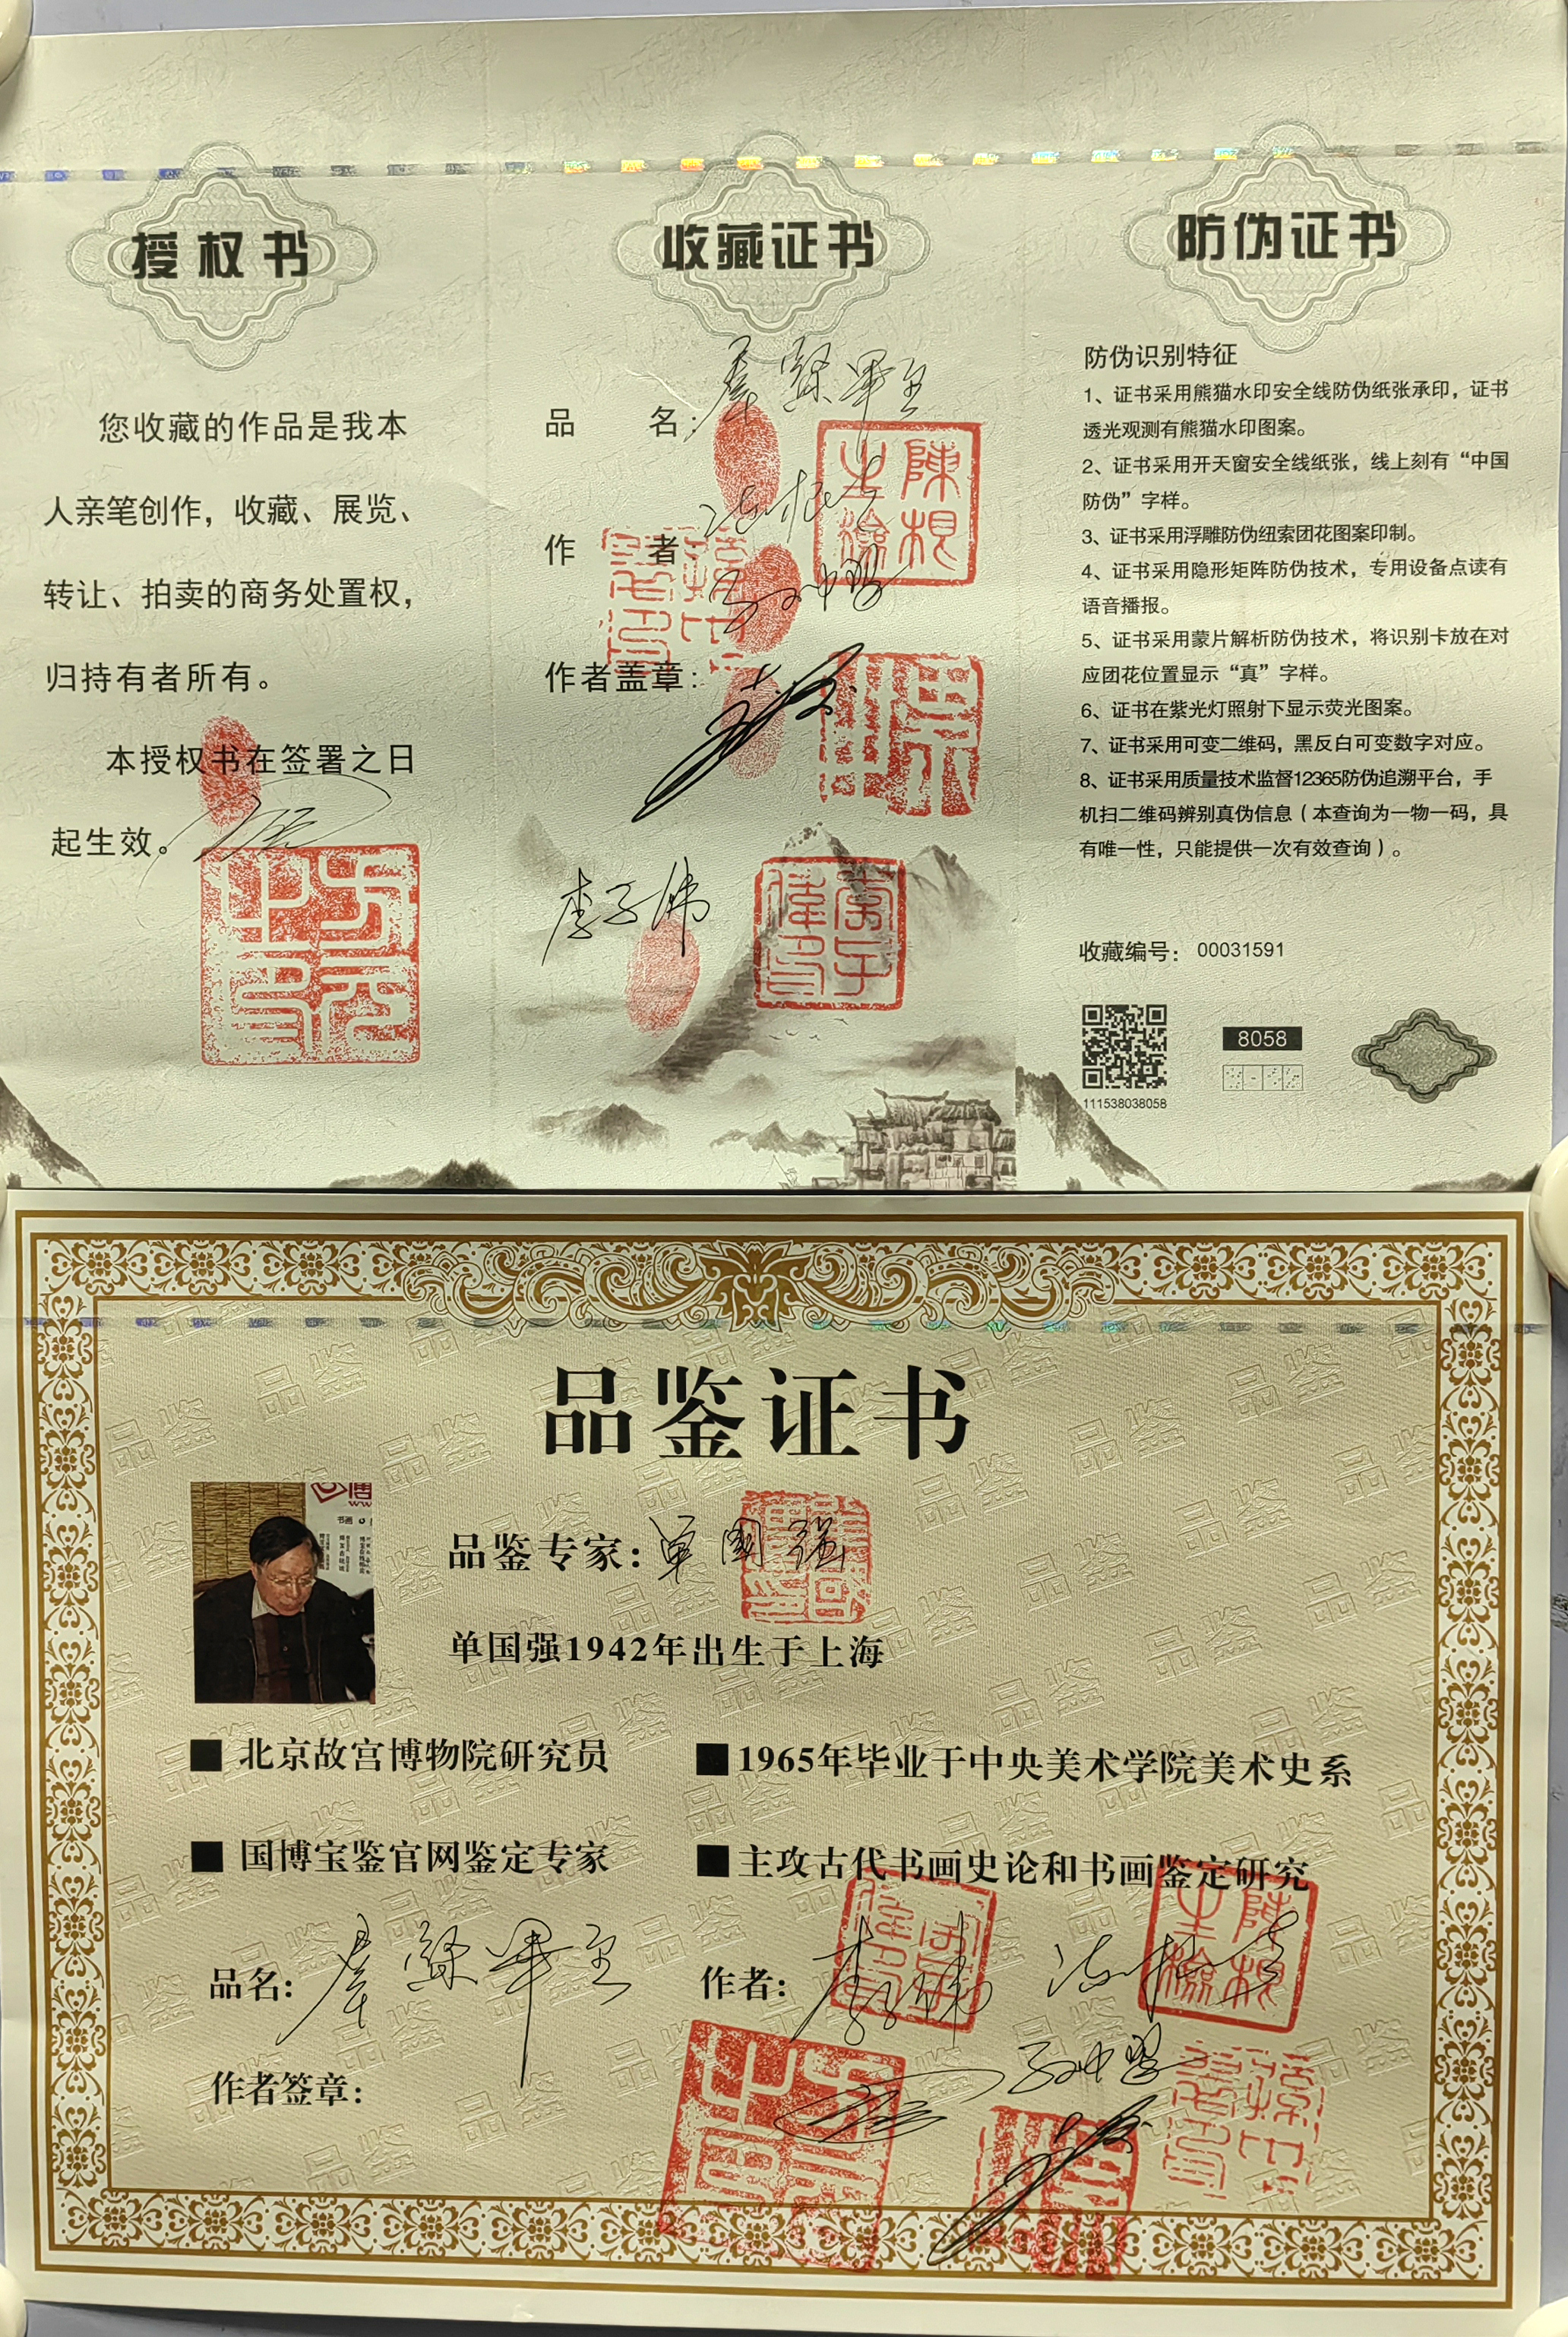 授权书
您收藏的作品是我本
人亲笔创作，收藏、展览、
转让、拍卖的商务处置权，
归持有者所有。
本授权书在签署之日
起生效。
收藏证书
品 名：
作 者
作者盖章：
李子伟
防伪证书
防伪识别特征
1、证书采用熊猫水印安全线防伪纸张承印，证书
透光观测有熊猫水印图案。
2、证书采用开天窗安全线纸张，线上刻有“中国
防伪”字样。
3、证书采用浮雕防伪纽索团花图案印制。
4、证书采用隐形矩阵防伪技术，专用设备点读有
语音播报。
5、证书采用蒙片解析防伪技术，将识别卡放在对
应团花位置显示“真”字样。
6、证书在紫光灯照射下显示荧光图案。
7、证书采用可变二维码，黑反白可变数字对应。
8、证书采用质量技术监督12365防伪追溯平台，手
机扫二维码辨别真伪信息（本查询为一物一码，具
有唯一性，只能提供一次有效查询）。
收藏编号： 00031591
8058
111538038058
品鉴证书
品鉴专家：单国强
单国强1942年出生于上海
■ 北京故宫博物院研究员
■ 1965年毕业于中央美术学院美术史系
■ 国博宝鉴官网鉴定专家
■ 主攻古代书画史论和书画鉴定研究
品名：
作者：李子伟
作者签章：